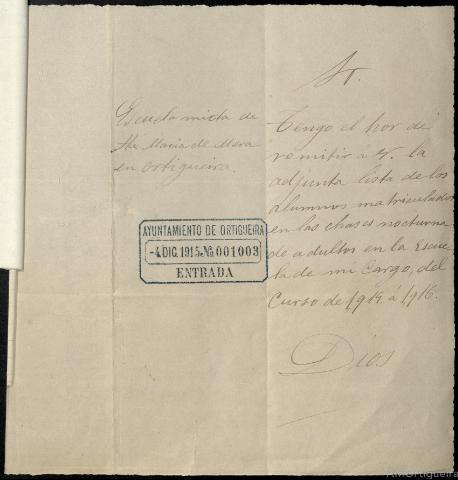 Escuela mixta de
Sta Maria de Mera
en Ortigueira.
AYUNTAMIENTO DE ORTIGUEIRA
-4 DIC. 1915 No 001003
ENTRADA
Sr.
Tengo el hor de
remitir á V. la
adjunta lista de los
alumnos matriculados
en las clases nocturna
de adultos en la Escue
la de mi Cargo, del
Curso de 1915 á 1916.
Dios
AMOrtigueira